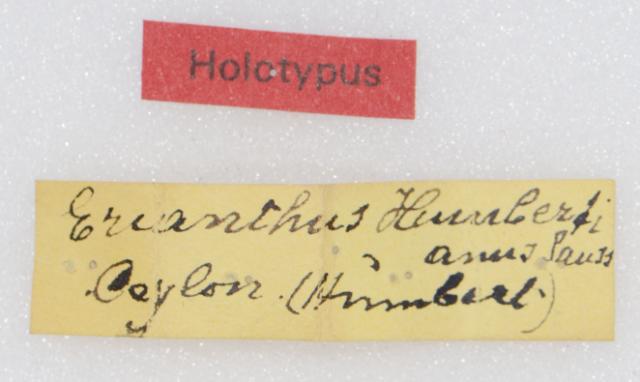 Holotypus
Erianthus Humberti
anus Sauss
Ceylon. (Humbert.)